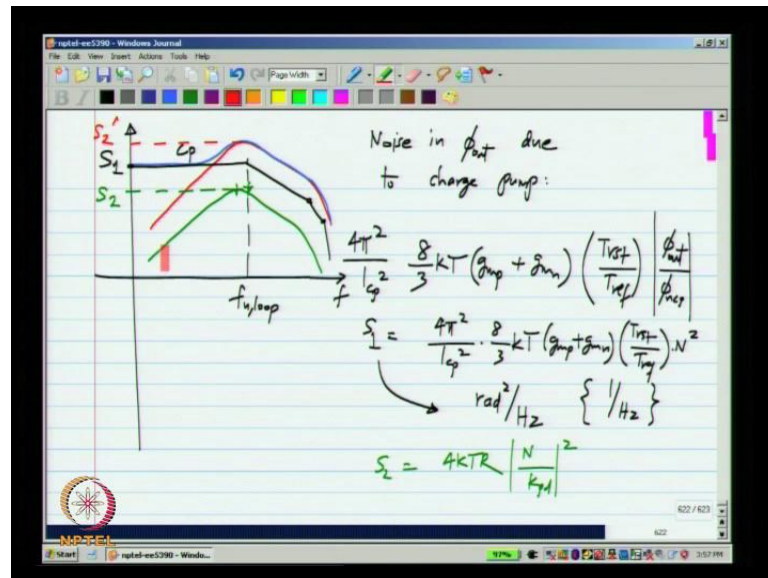 nptel-ee5390 - Windows Journal
File Edit View Insert Actions Tools Help
Page Width
B I
S2'
S1
Cp
S2
f_u,loop
f
Noise in ϕout due
to charge pump:
4π²/Icp² · 8/3 kT (gmp + gmn) (Trst/Tref) |ϕout/ϕncp|
S1 = 4π²/Icp² · 8/3 kT (gmp + gmn) (Trst/Tref) · N²
rad²/Hz { 1/Hz }
S2 = 4KTR |N/Kpd|²
622 / 623
622
NPTEL
Start
nptel-ee5390 - Windo...
97%
3:57 PM